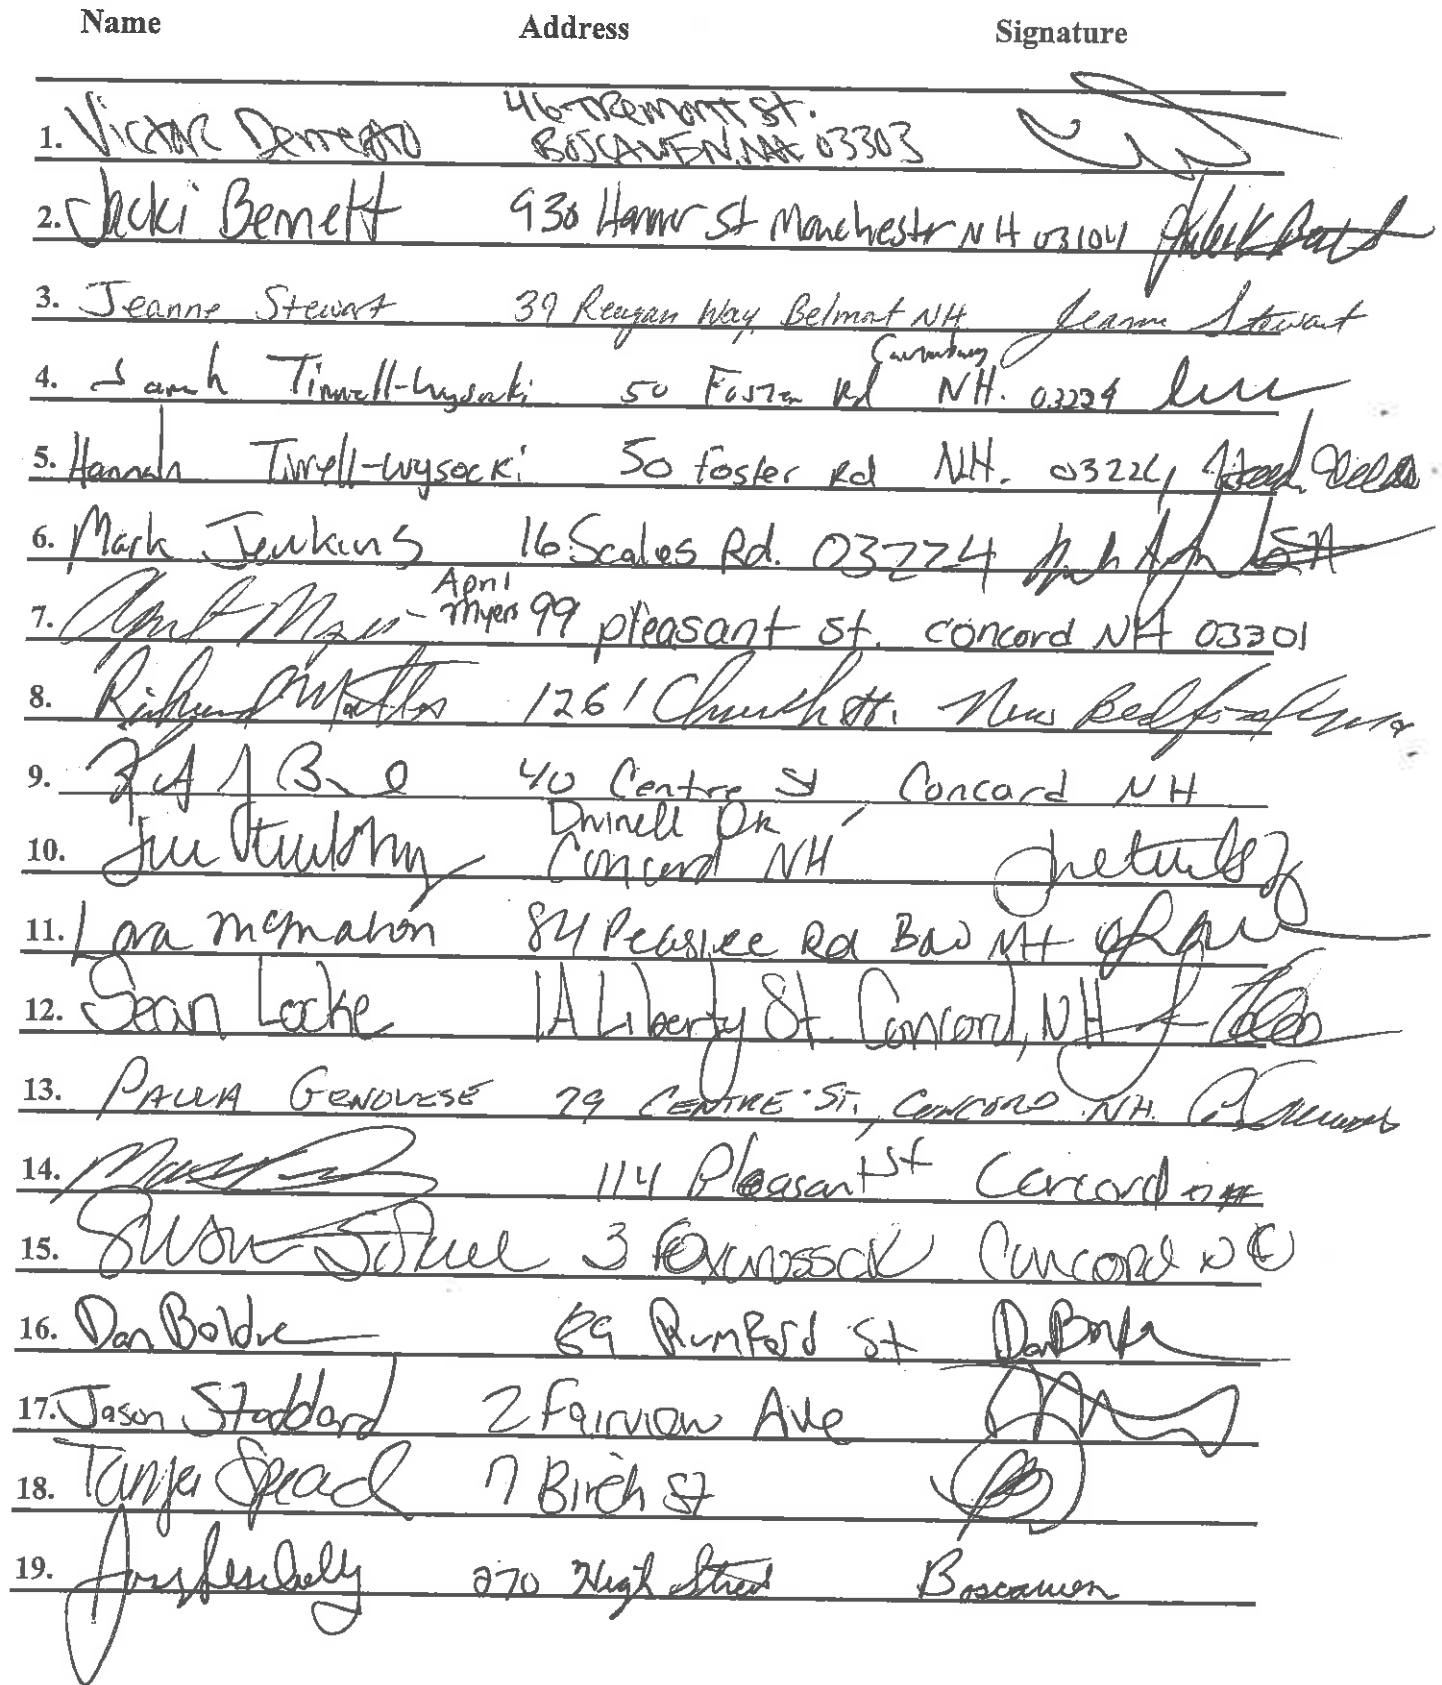 Name Address Signature
46 Tremont St.
1. Victor Demetro Boscawen, NH 03303
2. Jacki Bennett 930 Hanover St Manchestr NH 03104
3. Jeanne Stewart 39 Reagan Way, Belmont NH Jeanne Stewart
Canterbury
4. Sarah Tirrell-Wysocki 50 Foster Rd NH. 03224
5. Hannah Tirrell-Wysocki 50 foster Rd NH. 03224
6. Mark Jenkins 16 Scales Rd. 03224
April
7. April Myers - Myers 99 pleasant st. concord NH 03301
8. Richard Mattos 1261 Church St. New Bedford
9. 40 Centre St, Concord NH
Dwinell Dr
10. Concord NH
11. Lara McMahon 84 Peaslee Rd Bow NH
12. Sean Locke 1A Liberty St. Concord, NH
13. Paula Genovese 79 Centre St., Concord NH.
14. 114 Pleasant St Concord
15. 3 Foxcross Concord
16. Dan 89 Rumford St Dan
17. Jason Stoddard 2 Fairview Ave
18. Tanya Spead 7 Birch St
19. 270 High Street Boscawen